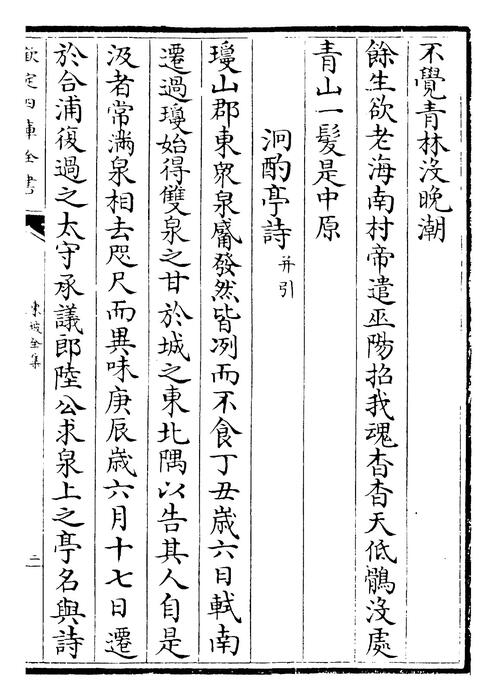 不覺青林沒晚潮
餘生欲老海南村帝遣巫陽招我魂杳杳天低鶻沒處
青山一髮是中原
泂酌亭詩并引
瓊山郡東衆泉觱發然皆冽而不食丁丑歲六月軾南
遷過瓊始得雙泉之甘於城之東北隅以告其人自是
汲者常滿泉相去咫尺而異味庚辰歲六月十七日遷
於合浦復過之太守承議郎陸公求泉上之亭名與詩
欽定四庫全書
東坡全集
二